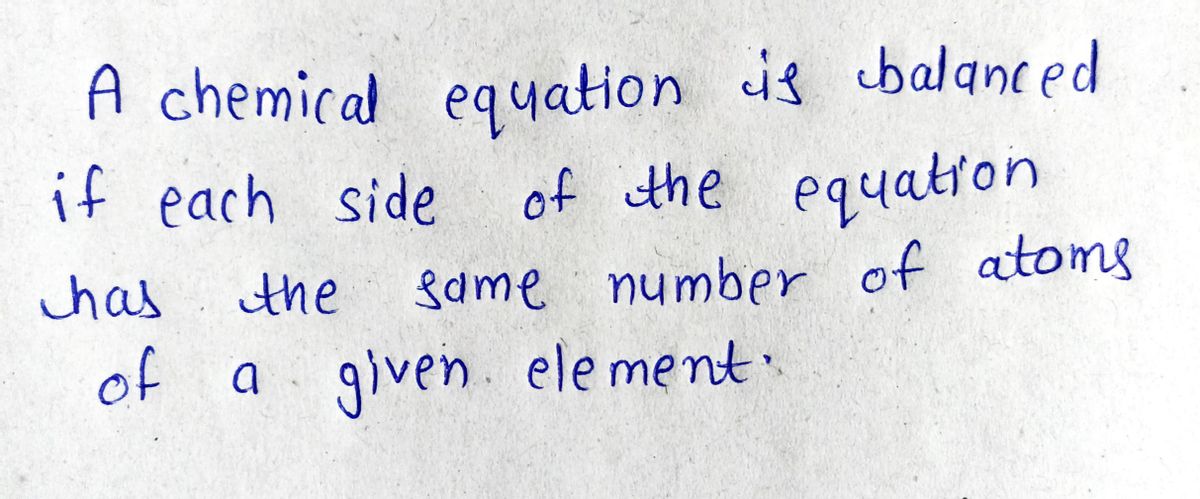 A chemical equation is balanced
if each side of the equation
has the same number of atoms
of a given element.